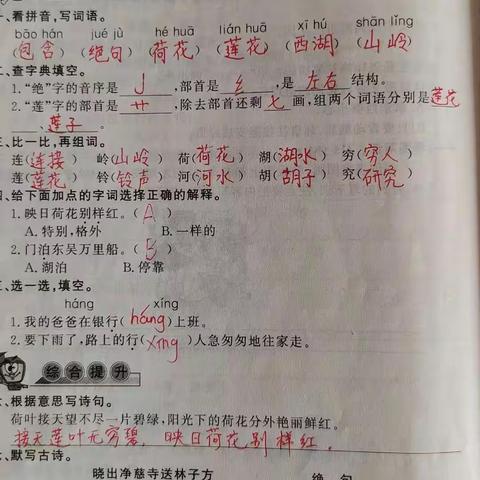 一、看拼音,写词语。
bāo hán jué jù hé huā lián huā xī hú shān lǐng
(包含) (绝句) (荷花) (莲花) (西湖) (山岭)
二、查字典填空。
1.“绝”字的音序是 J ,部首是 纟 ,是 左右 结构。
2.“莲”字的部首是 艹 ,除去部首还剩 七 画,组两个词语分别是 莲花
、 莲子 。
三、比一比,再组词。
连(连接) 岭(山岭) 荷(荷花) 湖(湖水) 穷(穷人)
莲(莲花) 铃(铃声) 河(河水) 胡(胡子) 究(研究)
四、给下面加点的字词选择正确的解释。
1.映日荷花别样红。( A )
A.特别,格外 B.一样的
2.门泊东吴万里船。( B )
A.湖泊 B.停靠
五、选一选,填空。
háng xíng
1.我的爸爸在银行( háng )上班。
2.要下雨了,路上的行( xíng )人急匆匆地往家走。
综合提升
六、根据意思写诗句。
荷叶接天望不尽一片碧绿,阳光下的荷花分外艳丽鲜红。
接天莲叶无穷碧,映日荷花别样红。
七、默写古诗。
晓出净慈寺送林子方 绝句